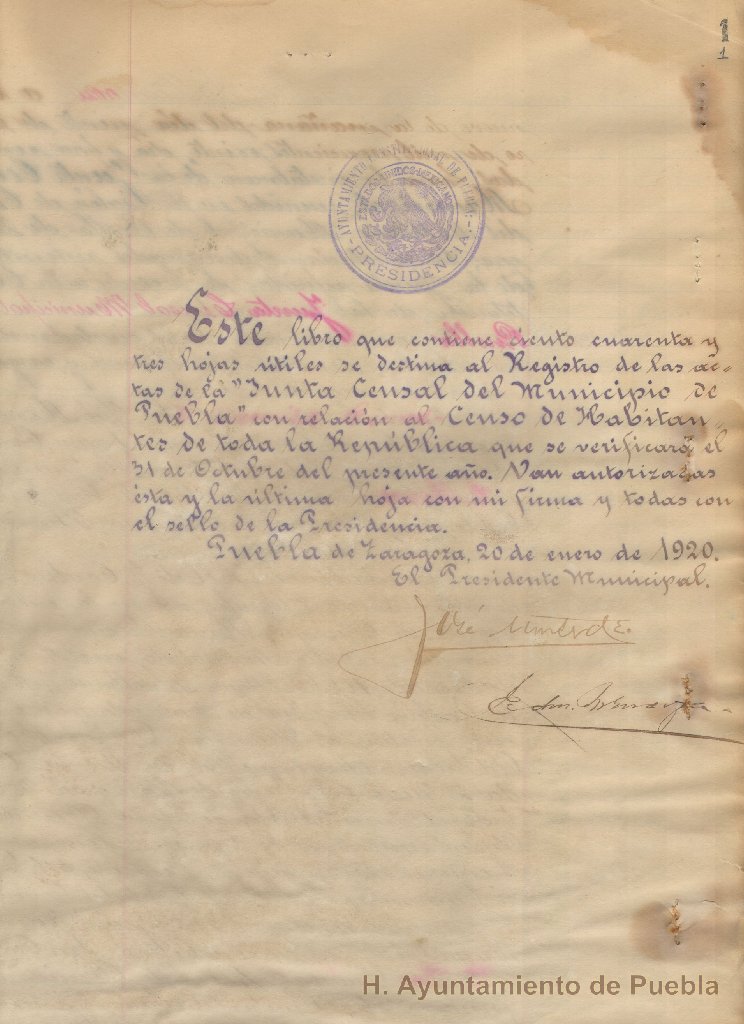 1
1
AYUNTAMIENTO CONSTITUCIONAL DE PUEBLA.
ESTADOS UNIDOS MEXICANOS
-PRESIDENCIA.-
Este libro que contiene ciento cuarenta y
tres hojas útiles se destina al Registro de las ac-
tas de la "Junta Censal del Municipio de
Puebla" con relación al Censo de Habitan-
tes de toda la República que se verificará el
31 de Octubre del presente año. Van autorizadas
ésta y la última hoja con mi firma y todas con
el sello de la Presidencia.
Puebla de Zaragoza, 20 de enero de 1920.
El Presidente Municipal.
José
H. Ayuntamiento de Puebla